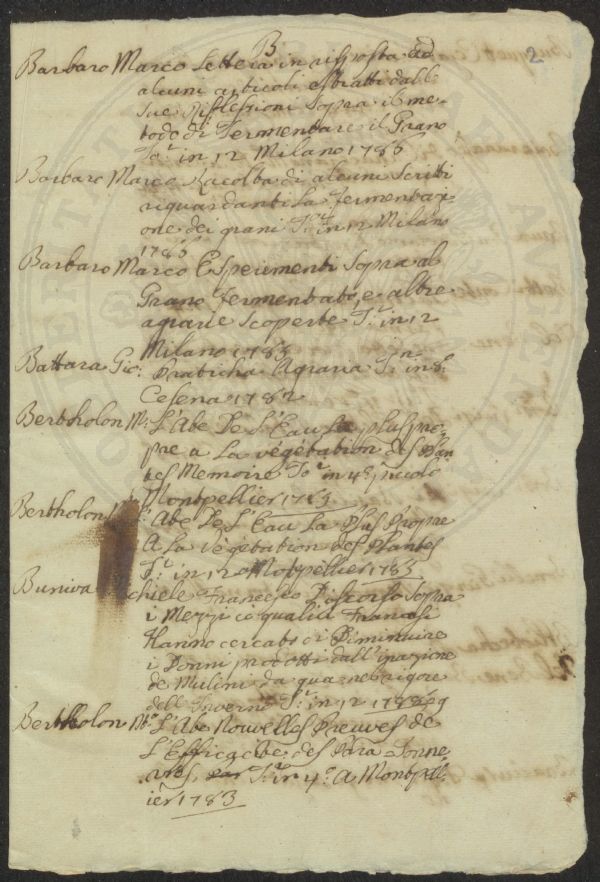 B
2
Barbaro Marco Lettera in risposta ad
alcuni articoli estratti dalle
sue Riflessioni sopra il me-
todo di Fermentare il Grano
T.º in 12 Milano 1785
Barbaro Marco Racolta di alcuni scritti
riguardanti la Fermentazi-
one dei grani T.º in 12 Milano
1785
Barbaro Marco Esperimenti sopra al
Grano Fermentato, e altre
agrarie scoperte T.º in 12
Milano 1785
Battara Gio: Praticha Agraria T.º in 8.º
Cesena 1782
Bertholon M.r L'Abe De L'Eau La plus pro-
pre a La végétation des Plan-
tes Memoire T.º in 4.º picolo
Montpellier 1783
Bertholon L'Abe De L'Eau La Plus Propre
A La Végétation des Plantes
T.º in 12 Motpellier 1783
Buniva Michiele Francesco Discorso Sopra
i Mezzi co quali i Francesi
Hanno cercato di Diminuire
i Danni prodotti dall'inazione
de Mulini da qua nel rigore
dell Inverno T.º in 12
Bertholon M.r L'Abe Nouvelles Preuves de
L'Efficacité des Para-Tonne-
res T.º in 4.º A Montpell-
ier 1783